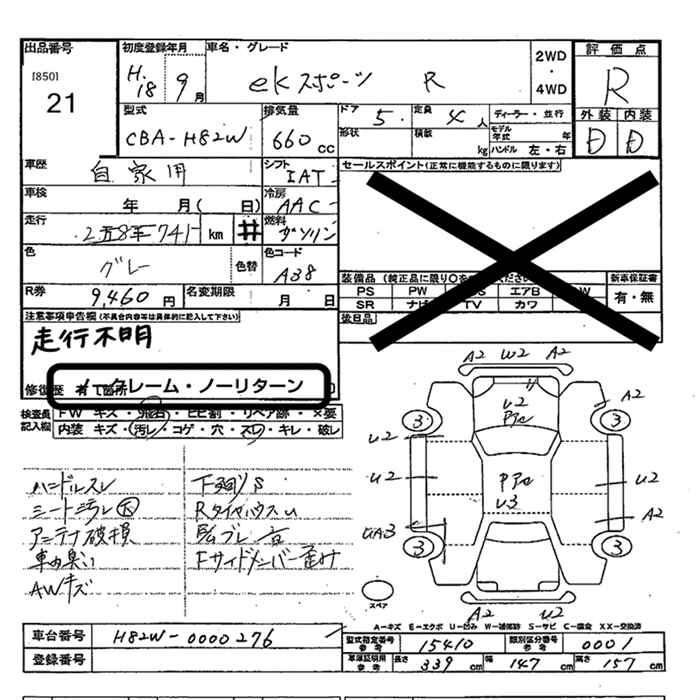 出品番号
[850]
21
初度登録年月
H.18 9月
車名・グレード
eKスポーツ R
2WD
・
4WD
評価点
R
型式
CBA-H82W
排気量
660cc
ドア
5
定員
4人
ディーラー・並行
形状
積載
kg
モデル年式 年
ハンドル 左・右
外装 内装
D D
車歴
自家用
シフト
IAT
セールスポイント(正常に機能するものに限ります)
車検
年 月( 日)
冷房
AAC
走行
km
#
燃料
ガソリン
色
グレー
色替
色コード
A38
装備品(純正品に限り〇を
ください)
新車保証書
有・無
PS PW エアB W
SR ナビ TV カワ
R券
9,460円
名変期限
月 日
後日品
注意事項申告欄(不具合内容等は具体的に記入して下さい)
走行不明
修復歴
ノークレーム・ノーリターン
検査員記入欄
FW キズ・飛石・ヒビ割・リペア跡・×要
内装 キズ・汚レ・コゲ・穴・スレ・キレ・破レ
ハンドルスレ
シートミラレ 大
アンテナ破損
車内臭い
AWキズ
下廻りS
RタイヤハウスU
Fサイドメンバー歪み
A2 W2 A2
U2
A2
3 3
U2
U2 U2
U3
A2
UA3
3 3
A2 U2
スペア
A-キズ E-エクボ U-凹み W-補修跡 S-サビ C-腐食 XX-交換済
車台番号
H82W-0000276
登録番号
型式指定番号
参考
15410
類別区分番号
参考
0001
車庫証明用
参考
長さ
339cm
幅
147cm
高さ
157cm